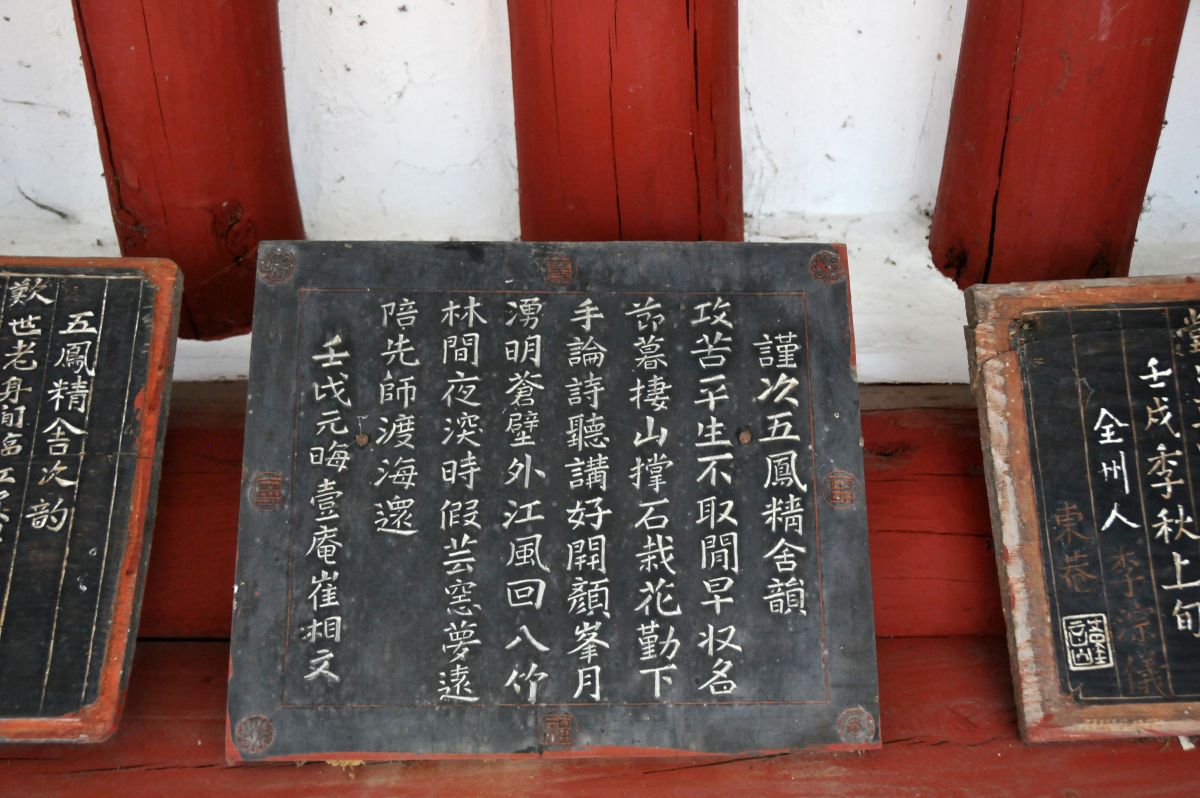 壬戌季秋上旬
全州人
謹次五鳳精舍韻
攻苦平生不取閒早収名
莭暮捿山撑石栽花勤下
手論詩聽講好開顔峯月
湧明蒼壁外江風回入竹
林間夜深時假芸窓夢遠
陪先師渡海還
壬戌元晦壹庵崔相文
五鳳精舍次韵
歎世老身